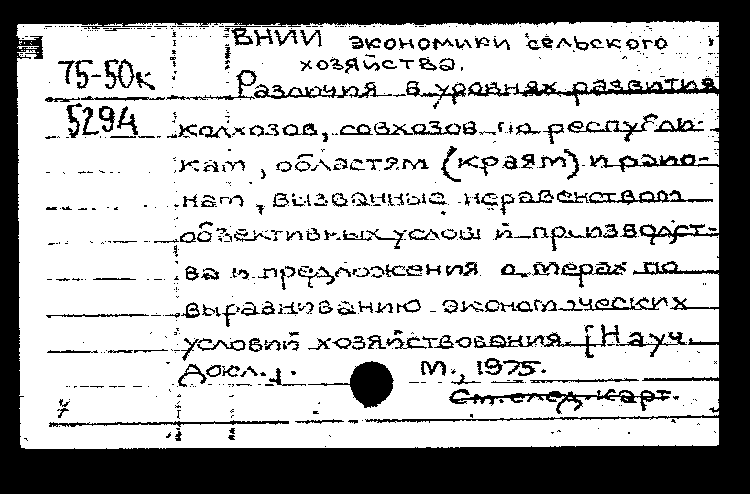 ВНИИ экономики сельского
хозяйства.
75-50к
Различия в уровнях развития
5294
колхозов, совхозов по республи-
кам, областям (краям) и райо-
нам, вызванные неравенством
объективных услов й производст-
ва и предложения о мерах по
выравниванию экономических
условий хозяйствования. [Науч.
докл.]. М., 1975.
См. след. карт.